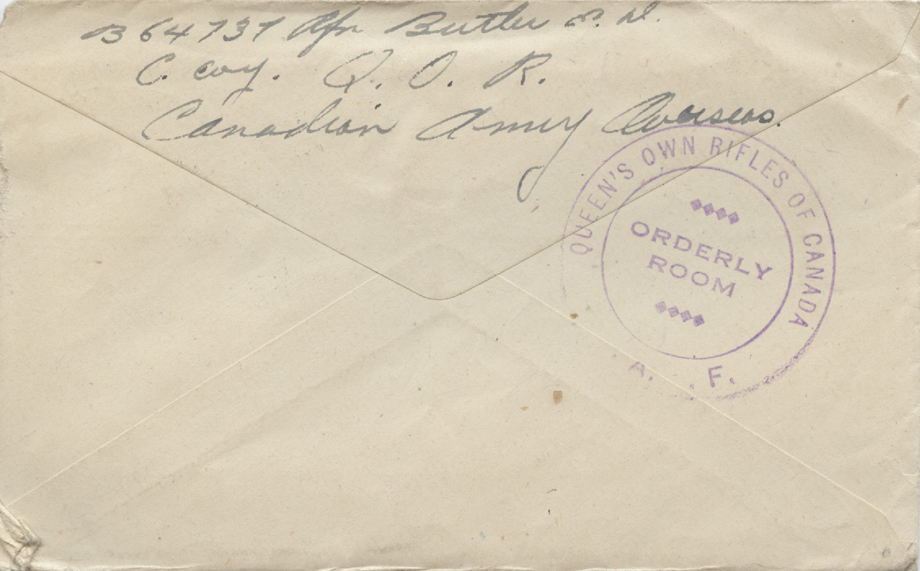 B 64737 Rfn Butler
C. Coy. Q. O. R.
Canadian Army Overseas.
QUEEN'S OWN RIFLES OF CANADA
ORDERLY
ROOM
A. . F.